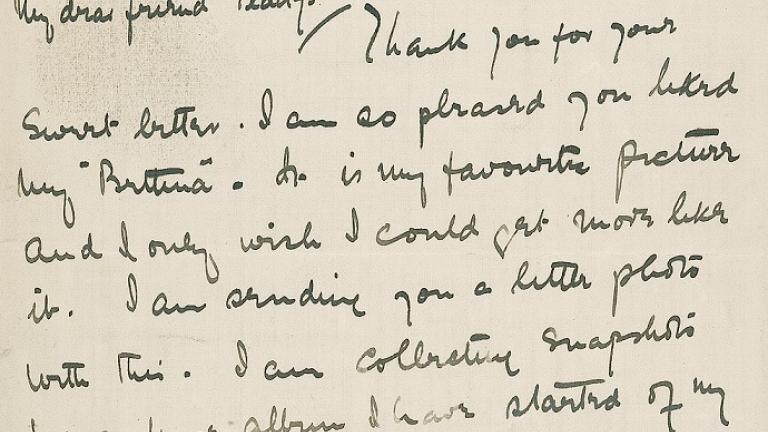 My dear friend
Thank you for your
Sweet letter. I am so pleased you liked
my "Bettina". It is my favourite picture
and I only wish I could get more like
it. I am sending you a little photo
with this. I am collecting snapshots
album I have started of "my